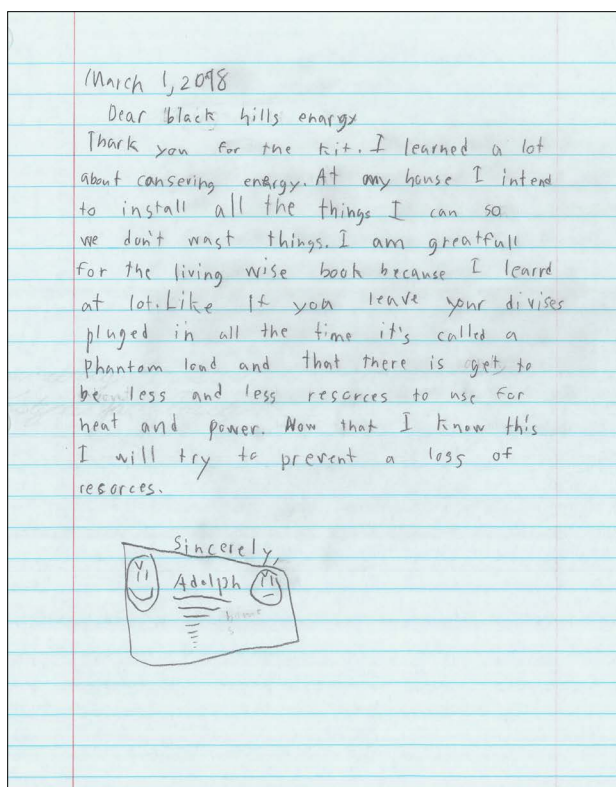 March 1, 2018
Dear black hills enargy
Thank you for the kit. I learned a lot
about cansering energy. At my house I intend
to install all the things I can so
we don't wast things. I am greatfull
for the living wise book because I learnd
at lot. Like If you leave your divises
pluged in all the time it's called a
Phantom load and that there is get to
be less and less resorces to use for
heat and power. Now that I know this
I will try to prevent a loss of
resorces.
Sincerely,
Adolph